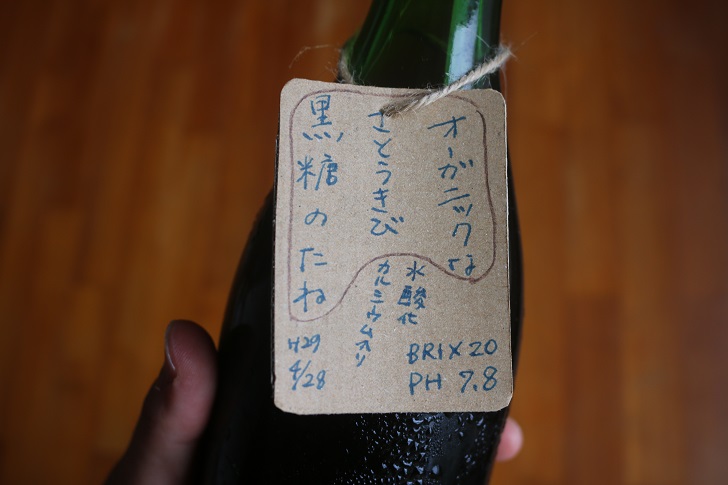 オーガニックな
さとうきび
黒糖のたね
水酸化
カルシウム入り
BRIX 20
PH 7.8
H29
4/28